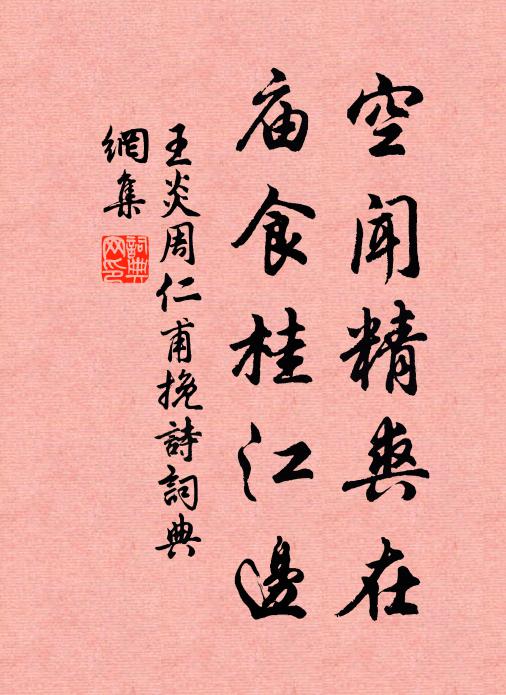 空闻精爽在
庙食桂江邊
王炎周仁甫挽詩詞典
網集
詞典网印